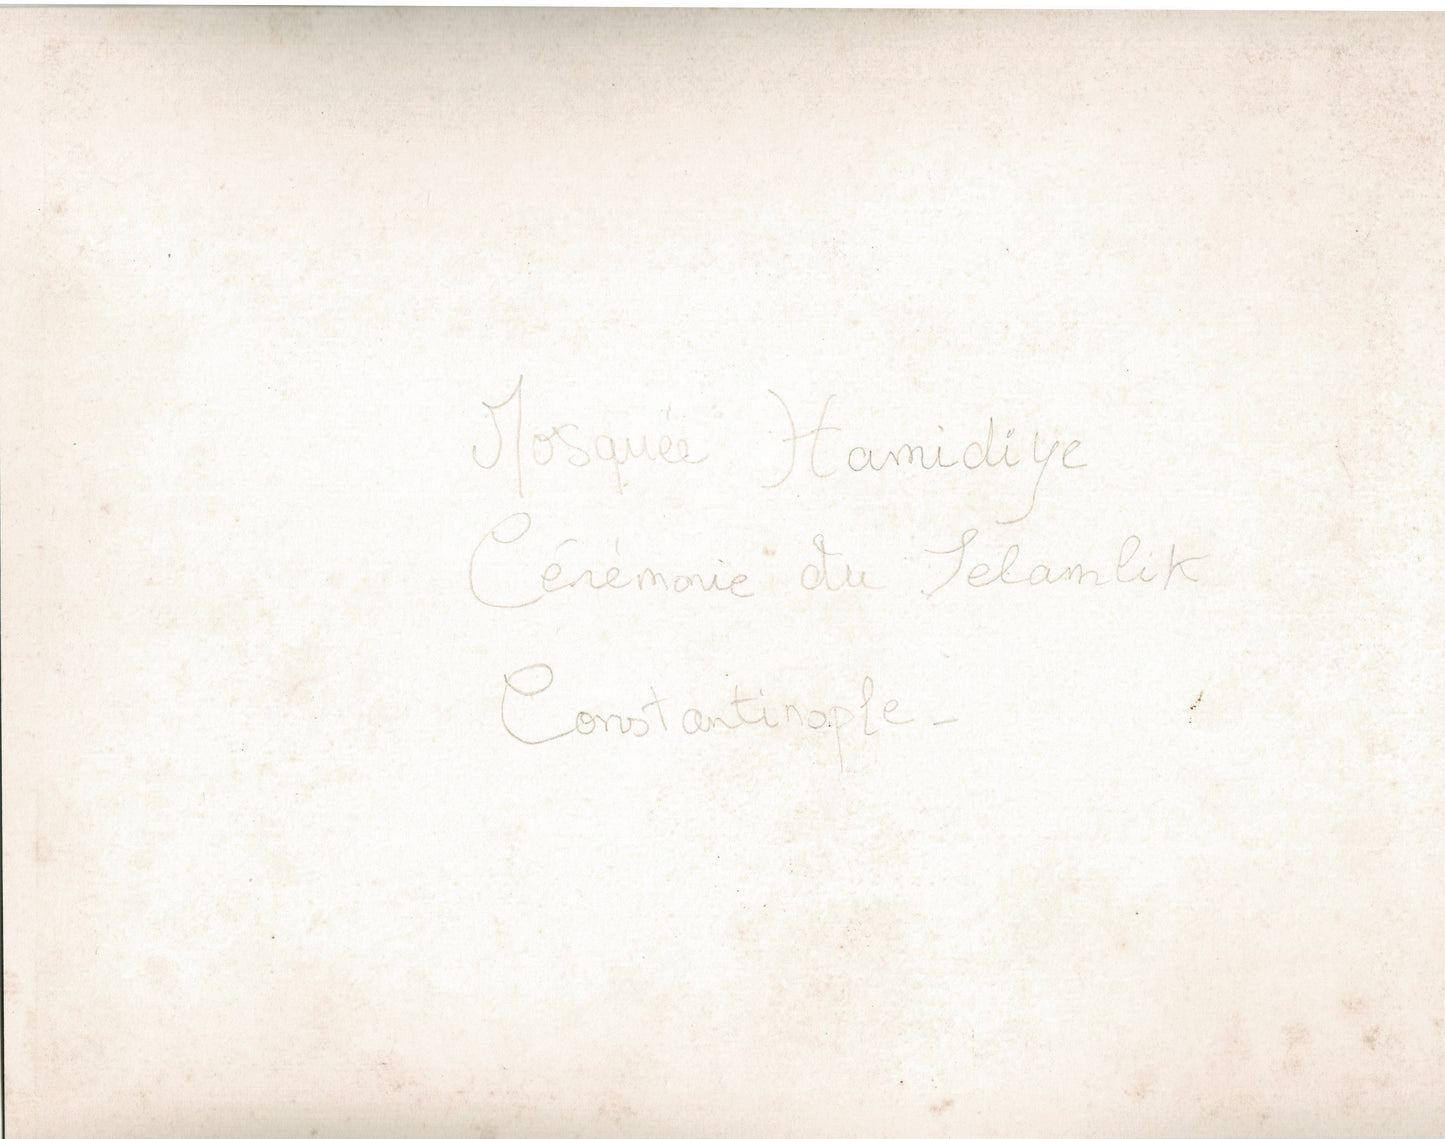 Mosquée Hamidiye
Cérémonie du Sélamlik
Constantinople -